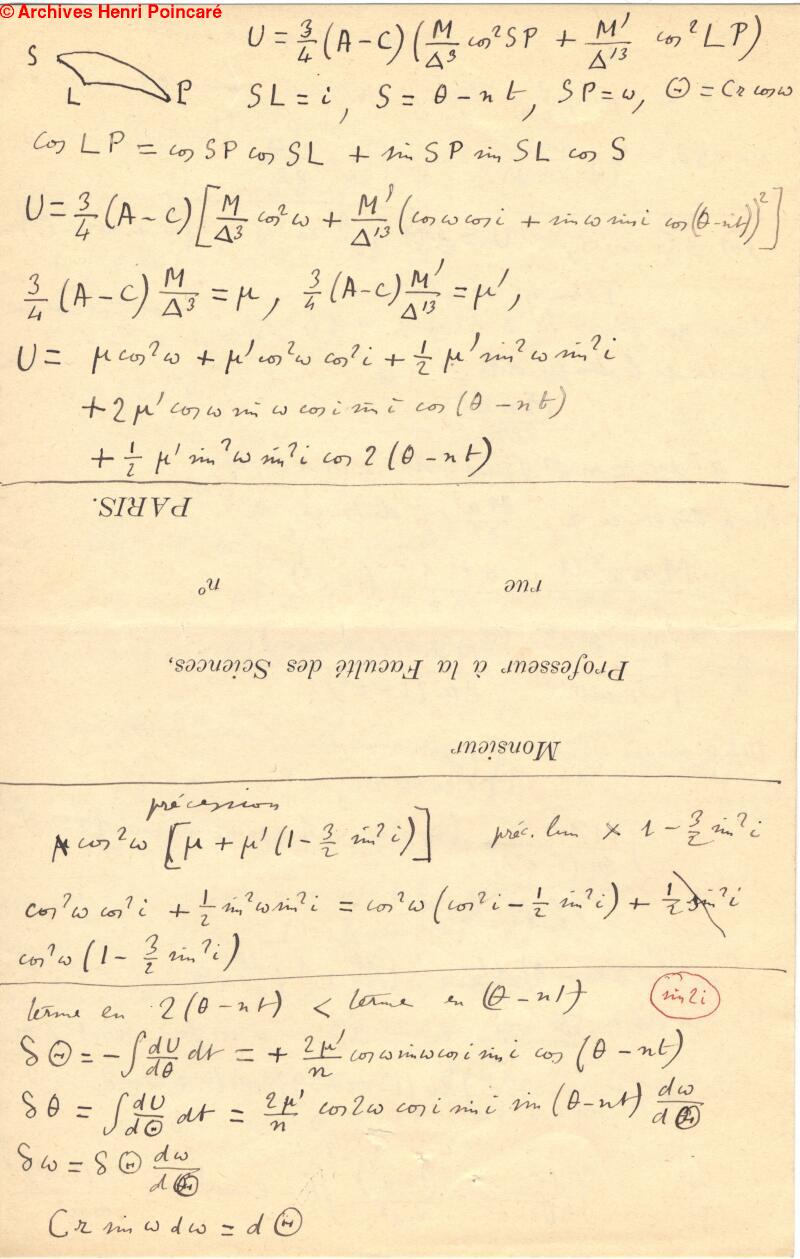 © Archives Henri Poincaré
S
L P
U = 3/4 (A − C) (M/Δ³ cos² SP + M'/Δ'³ cos² LP)
SL = i, S = θ − nt, SP = ω, Θ = Cr cos ω
cos LP = cos SP cos SL + sin SP sin SL cos S
U = 3/4 (A − C) [M/Δ³ cos² ω + M'/Δ'³ (cos ω cos i + sin ω sin i cos (θ − nt))²]
3/4 (A − C) M/Δ³ = μ, 3/4 (A − C) M'/Δ'³ = μ',
U = μ cos² ω + μ' cos² ω cos² i + 1/2 μ' sin² ω sin² i
+ 2 μ' cos ω sin ω cos i sin i cos (θ − nt)
+ 1/2 μ' sin² ω sin² i cos 2 (θ − nt)
PARIS.
rue n°
Professeur à la Faculté des Sciences,
Monsieur
précession
cos² ω [μ + μ' (1 − 3/2 sin² i)] préc. lun × 1 − 3/2 sin² i
cos² ω cos² i + 1/2 sin² ω sin² i = cos² ω (cos² i − 1/2 sin² i) + 1/2 sin² i
cos² ω (1 − 3/2 sin² i)
terme en 2 (θ − nt) < terme en (θ − nt) sin 2i
δ Θ = − ∫ dU/dθ dt = + 2μ'/n cos ω sin ω cos i sin i cos (θ − nt)
δ θ = ∫ dU/dΘ dt = 2μ'/n cos 2ω cos i sin i sin (θ − nt) dω/dΘ
δ ω = δ Θ dω/dΘ
Cr sin ω dω = d Θ